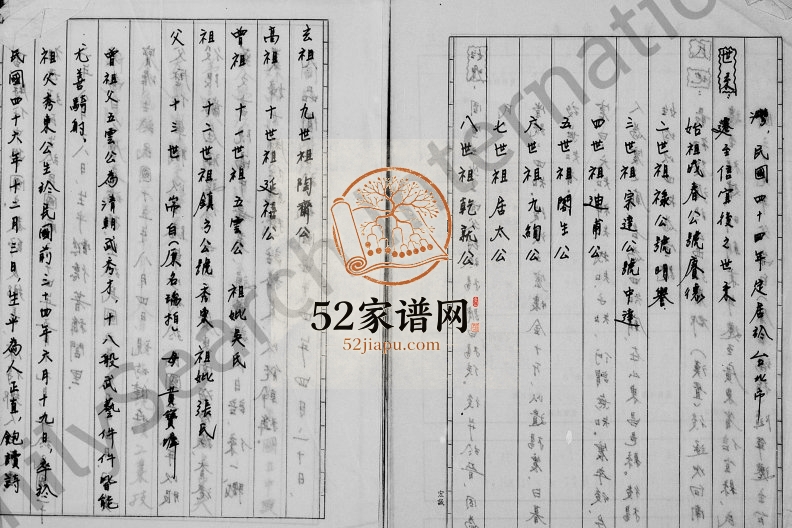 灣,民國四十四年定居於台北市
世系: 遷至信宜後之世系
始祖茂春公號賡德
二世祖祿公號明譽
三世祖宋遠公號中達
四世祖迪甫公
五世祖閣生公
六世祖九絢公
七世祖居太公
八世祖乾就公
宏誠
玄祖 九世祖陶齋公
高祖 十世祖延禧公
曾祖 十一世祖五雲公 祖妣吳氏
祖 十二世祖鎮方公號秀東 祖妣張氏
父 十三世 常自(原名瑞柏) 母
曾祖父五雲公為清朝武秀才,十八般武藝件件皆能
尤善騎射。
祖父秀東公生於民國前三十四年六月十九日,卒於
民國四十六年十二月三日,生平為人正直,飽讀詩
52家谱网
52jiapu.com
FamilySearch International